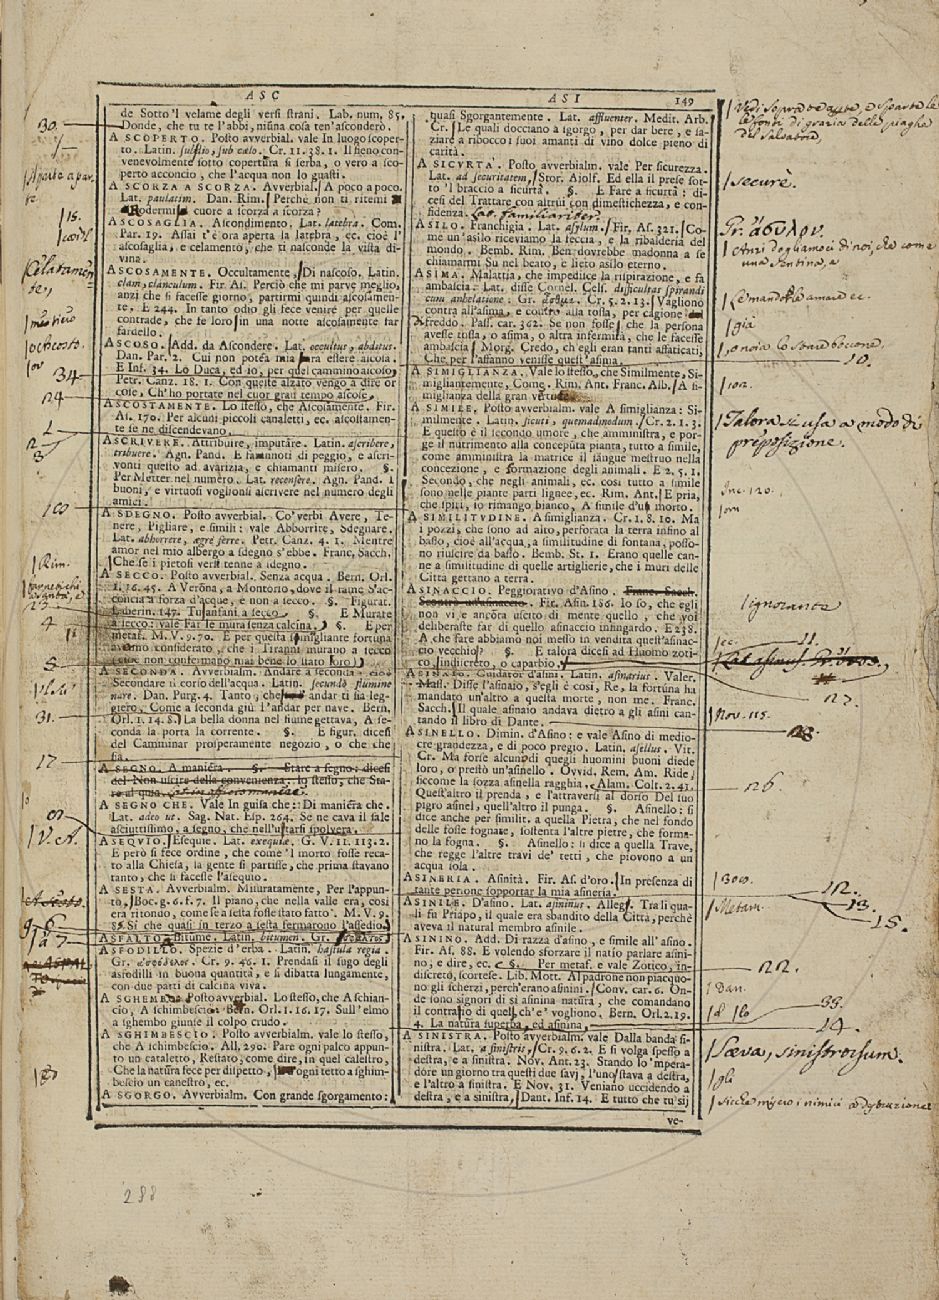 ASC
ASI
149
de Sotto 'l velame degli versi strani. Lab. num. 85.
Donde, che tu te l'abbi, niuna cosa ten'asconderò.
A SCOPERTO. Posto avverbial. vale In luogo scoper-
to. Latin. sub cælo. Cr. 11. 38. 1. Il fieno con-
venevolmente sotto copertura si serba, o vero a sco-
perto acconcio, che l'acqua non lo guasti.
A SCORZA A SCORZA. Avverbial. A poco a poco.
Lat. paulatim. Dan. Rim. Perchè non ti ritemi
rodermi cuore a scorza a scorza?
ASCOSAGLIA. Ascondimento. Lat. latebra. Com.
Par. 19. Assai t'è ora aperta la latebra, ec. cioè l'
ascosaglia, e celamento, che ti nasconde la vista di-
vina.
ASCOSAMENTE. Occultamente, Di nascoso. Latin.
clam, clanculum. Fir. As. Perciò che mi parve meglio,
anzi che si facesse giorno, partirmi quindi ascosamen-
te, E 244. In tanto odio gli fece venire per quelle
contrade, che fe loro in una notte ascosamente far
fardello.
ASCOSO. Add. da Ascondere. Lat. occultus, abditus.
Dan. Par. 2. Cui non potea mia ura essere ascosa.
E Inf. 34. Lo Duca, ed io, per quel cammino ascoso,
Petr. Canz. 18. 1. Con queste alzato vengo a dire or
cose, Ch'ho portate nel cuor gran tempo ascose.
ASCOSTAMENTE. Lo stesso, che Ascosamente. Fir.
As. 170. Per alcuni piccoli canaletti, ec. ascostamen-
te se ne discendevano.
ASCRIVERE. Attribuire, imputare. Latin. ascribere,
tribuere. Agn. Pand. E fannoti di peggio, e ascri-
vonti questo ad avarizia, e chiamanti misero. §.
Per Metter nel numero. Lat. recensere. Agn. Pand. I
buoni, e virtuosi voglionsi ascrivere nel numero degli
amici.
A SDEGNO. Posto avverbial. Co' verbi Avere, Te-
nere, Pigliare, e simili: vale Abborrire, Sdegnare.
Lat. abhorrere, ægrè ferre. Petr. Canz. 4. 1. Mentre
amor nel mio albergo a sdegno s'ebbe. Franc. Sacch.
Che se i pietosi versi tenne a sdegno.
A SECCO. Posto avverbial. Senza acqua. Bern. Orl.
1. 16. 45. A Verona, a Montorio, dove il rame S'ac-
concia a forza d'acque, e non a secco. §. Figurat.
Laberin. 147. Tusanfani a secco. §. E Murate
a secco: vale Far le mura senza calcina. §. E per
metaf. M. V. 9. 70. E per questa simigliante fortuna
avemo considerato, che i Tiranni murano a secco
(cioè non confermano mai bene lo stato loro)
A SECONDA. Avverbialm. Andare a seconda: cioè
Secondare il corso dell'acqua. Latin. secundo flumine
nare. Dan. Purg. 4. Tanto, che andar ti sia leg-
giero, Come a seconda giù l'andar per nave. Bern.
Orl. 1. 14. 8. La bella donna nel fiume gettava, A se-
conda la porta la corrente. §. E figur. dicesi
del Camminar prosperamente negozio, o che che
sia.
A SEGNO. A maniera. §. Stare a segno: dicesi
del Non uscire della convenevolezza: lo stesso, che Sta-
re al quia.
A SEGNO CHE. Vale In guisa che: Di maniera che.
Lat. adeo ut. Sag. Nat. Esp. 264. Se ne cava il sale
asciuttissimo, a segno, che nell'ustarsi spolvera.
ASEQVIO. Esequie. Lat. exequiæ. G. V. 11. 113. 2.
E però si fece ordine, che come 'l morto fosse reca-
to alla Chiesa, la gente si partisse, che prima stavano
tanto, che si facesse l'asequio.
A SESTA. Avverbialm. Misuratamente, Per l'appun-
to. Boc. g. 6. f. 7. Il piano, che nella valle era, così
era ritondo, come se a sesta fosse stato fatto. M. V. 9.
85. Sì che quasi in terzo a sesta fermarono l'assedio.
ASFALTO. Bitume. Latin. bitumen. Gr.
ASFODILLO. Spezie d'erba. Latin. hastula regia.
Gr. ἀσφόδελος. Cr. 9. 46. 1. Prendasi il sugo degli
asfodilli in buona quantità, e si dibatta lungamente,
con due parti di calcina viva.
A SGHEMBO. Posto avverbial. Lo stesso, che A schian-
cio, A schimbescio. Bern. Orl. 1. 16. 17. Sull'elmo
a sghembo giunse il colpo crudo.
A SGHIMBESCIO. Posto avverbialm. vale lo stesso,
che A ischimbescio. All. 290. Pare ogni palco appun-
to un cataletto, Restato, come dire, in quel calestro,
Che la natura fece per dispetto, ogni tetto a sghim-
bescio un canestro, ec.
A SGORGO. Avverbialm. Con grande sgorgamento:
quasi Sgorgantemente. Lat. affluenter. Medit. Arb.
Cr. Le quali docciano a sgorgo, per dar bere, e sa-
ziare a ribocco i suoi amanti di vino dolce pieno di
carità.
A SICVRTA'. Posto avverbialm. vale Per sicurezza.
Lat. ad securitatem. Stor. Aiolf. Ed ella il prese sot-
to 'l braccio a sicurtà. §. E Fare a sicurtà: di-
cesi del Trattare con altrui con dimestichezza, e con-
fidenza. Lat. familiariter.
ASILO. Franchigia. Lat. asylum. Fir. As. 321. Co-
me un'asilo riceviamo la feccia, e la ribalderia del
mondo. Bemb. Rim. Ben dovrebbe madonna a se
chiamarmi Su nel beato, e lieto asilo eterno.
ASIMA. Malattia, che impedisce la rispirazione, e fa
ambascia: Lat. disse Cornel. Cels. difficultas spirandi
cum anhelatione: Gr. ἄσθμα. Cr. 5. 2. 13. Vaglion
contro all'asima, e contro alla tossa, per cagione
freddo. Pass. car. 362. Se non fosse, che la persona
avesse tossa, o asima, o altra infermità, che le facesse
ambascia. Morg. Credo, ch'egli eran tanti affaticati,
Che per l'affanno venisse quest'asima.
A SIMIGLIANZA. Vale lo stesso, che Similmente, Si-
migliantemente, Come. Rim. Ant. Franc. Alb. A si-
miglianza della gran vertute.
A SIMILE. Posto avverbialm. vale A simiglianza: Si-
milmente. Latin. sicuti, quemadmodum. Cr. 2. 1. 3.
E questo è il secondo umore, che amministra, e por-
ge il nutrimento alla conceputa pianta, tutto a simile,
come amministra la matrice il sangue mestruo nella
concezione, e formazione degli animali. E 2. 5. 1.
Secondo, che negli animali, ec. così tutto a simile
sono nelle piante parti lignee, ec. Rim. Ant. E pria,
che spiri, io rimango bianco, A simile d'un morto.
A SIMILITVDINE. A simiglianza. Cr. 1. 8. 10. Ma
i pozzi, che sono ad alto, perforata la terra infino al
basso, cioè all'acqua, a similitudine di fontana, posso-
no riuscire da basso. Bemb. St. 1. Erano quelle can-
ne a similitudine di quelle artiglierie, che i muri delle
Città gettano a terra.
ASINACCIO. Peggiorativo d'Asino. Franc. Sacch.
Fir. Asin. 186. Io so, che egli
non vi è ancora uscito di mente quello, che voi
deliberaste far di quello asinaccio infingardo. E 238.
A che fare abbiamo noi messo in vendita quest'asinac-
cio vecchio? §. E talora dicesi ad Huomo zoti-
co, indiscreto, o caparbio.
ASINAIO. Guidator d'asini. Latin. asinarius. Valer.
Mass. Disse l'asinaio, s'egli è così, Re, la fortuna ha
mandato un'altro a questa morte, non me. Franc.
Sacch. Il quale asinaio andava dietro a gli asini can-
tando il libro di Dante.
ASINELLO. Dimin. d'Asino: e vale Asino di medio-
cre grandezza, e di poco pregio. Latin. asellus. Vit.
Cr. Ma forse alcuno di quegli huomini buoni diede
loro, o prestò un'asinello. Ovvid. Rem. Am. Ride,
siccome la sozza asinella ragghia, Alam. Colt. 2. 41.
Quest'altro il prenda, e l'attraversi al dorso Del suo
pigro asinel, quell'altro il punga. §. Asinello: si
dice anche per similit. a quella Pietra, che nel fondo
delle fosse fognate, sostenta l'altre pietre, che forma-
no la fogna. §. Asinello: si dice a quella Trave,
che regge l'altre travi de' tetti, che piovono a un
acqua sola.
ASINERIA. Asinità. Fir. As. d'oro. In presenza di
tante persone sopportar la mia asineria.
ASINILE. D'asino. Lat. asininus. Alleg. Tra li qua-
li fu Priapo, il quale era sbandito della Città, perchè
aveva il natural membro asinile.
ASININO. Add. Di razza d'asino, e simile all' asino.
Fir. As. 88. E volendo sforzare il natio parlare asini-
no, e dire, ec. §. Per metaf. e vale Zotico, in-
discreto, scortese. Lib. Mott. Al padrone non piacquo-
no gli scherzi, perch'erano asinini. Conv. car. 6. On-
de sono signori di sì asinina natura, che comandano
il contrario di quel, ch'e' vogliono. Bern. Orl. 2. 19.
4. La natura superba, ed asinina.
A SINISTRA. Posto avverbialm. vale Dalla banda si-
nistra. Lat. a sinistris. Cr. 9. 6. 2. E si volga spesso a
destra, e a sinistra. Nov. Ant. 23. Stando lo 'mpera-
dore un giorno tra questi due savj, l'uno stava a destra,
e l'altro a sinistra. E Nov. 31. Veniano uccidendo a
destra, e a sinistra. Dant. Inf. 14. E tutto che tu sij
ve-
30.
15.
34
24
2
3
100
Rim.
23
4
8
31.
17
V. A.
6
7
securè.
Gr. ἄσυλον.
già
10.
Talora si usa a modo di
preposizione.
Inc. 120.
ignoranza
11.
27.
Nov. 115.
28.
26.
Boc.
12.
13.
15.
Metam.
22.
Dan.
33.
24.
Scæva, sinistrorsum.
gli
288